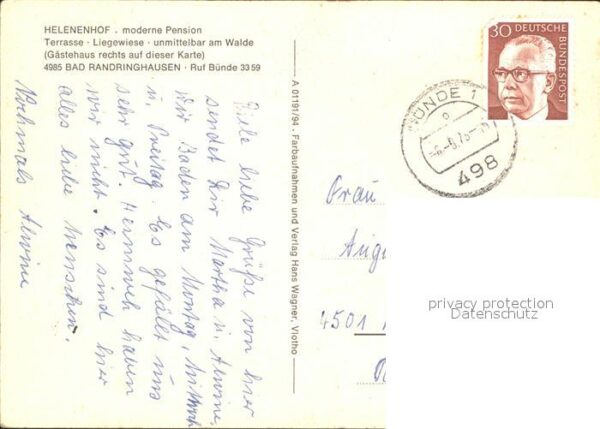 HELENENHOF . moderne Pension
Terrasse · Liegewiese · unmittelbar am Walde
(Gästehaus rechts auf dieser Karte)
4985 BAD RANDRINGHAUSEN · Ruf Bünde 33 59
Viele liebe Grüße von hier
sendet Dir Martha u. Alwine.
Wir baden am Montag, Mittwoch
u. Freitag. Es gefällt uns
sehr gut. Heimweh haben
wir nicht. Es sind hier
alles liebe Menschen.
Nochmals Alwine
A 01191/94 . Farbaufnahmen und Verlag Hans Wagner, Vlotho
30 DEUTSCHE
BUNDESPOST
BÜNDE 1
498
Frau
4501
privacy protection
Datenschutz